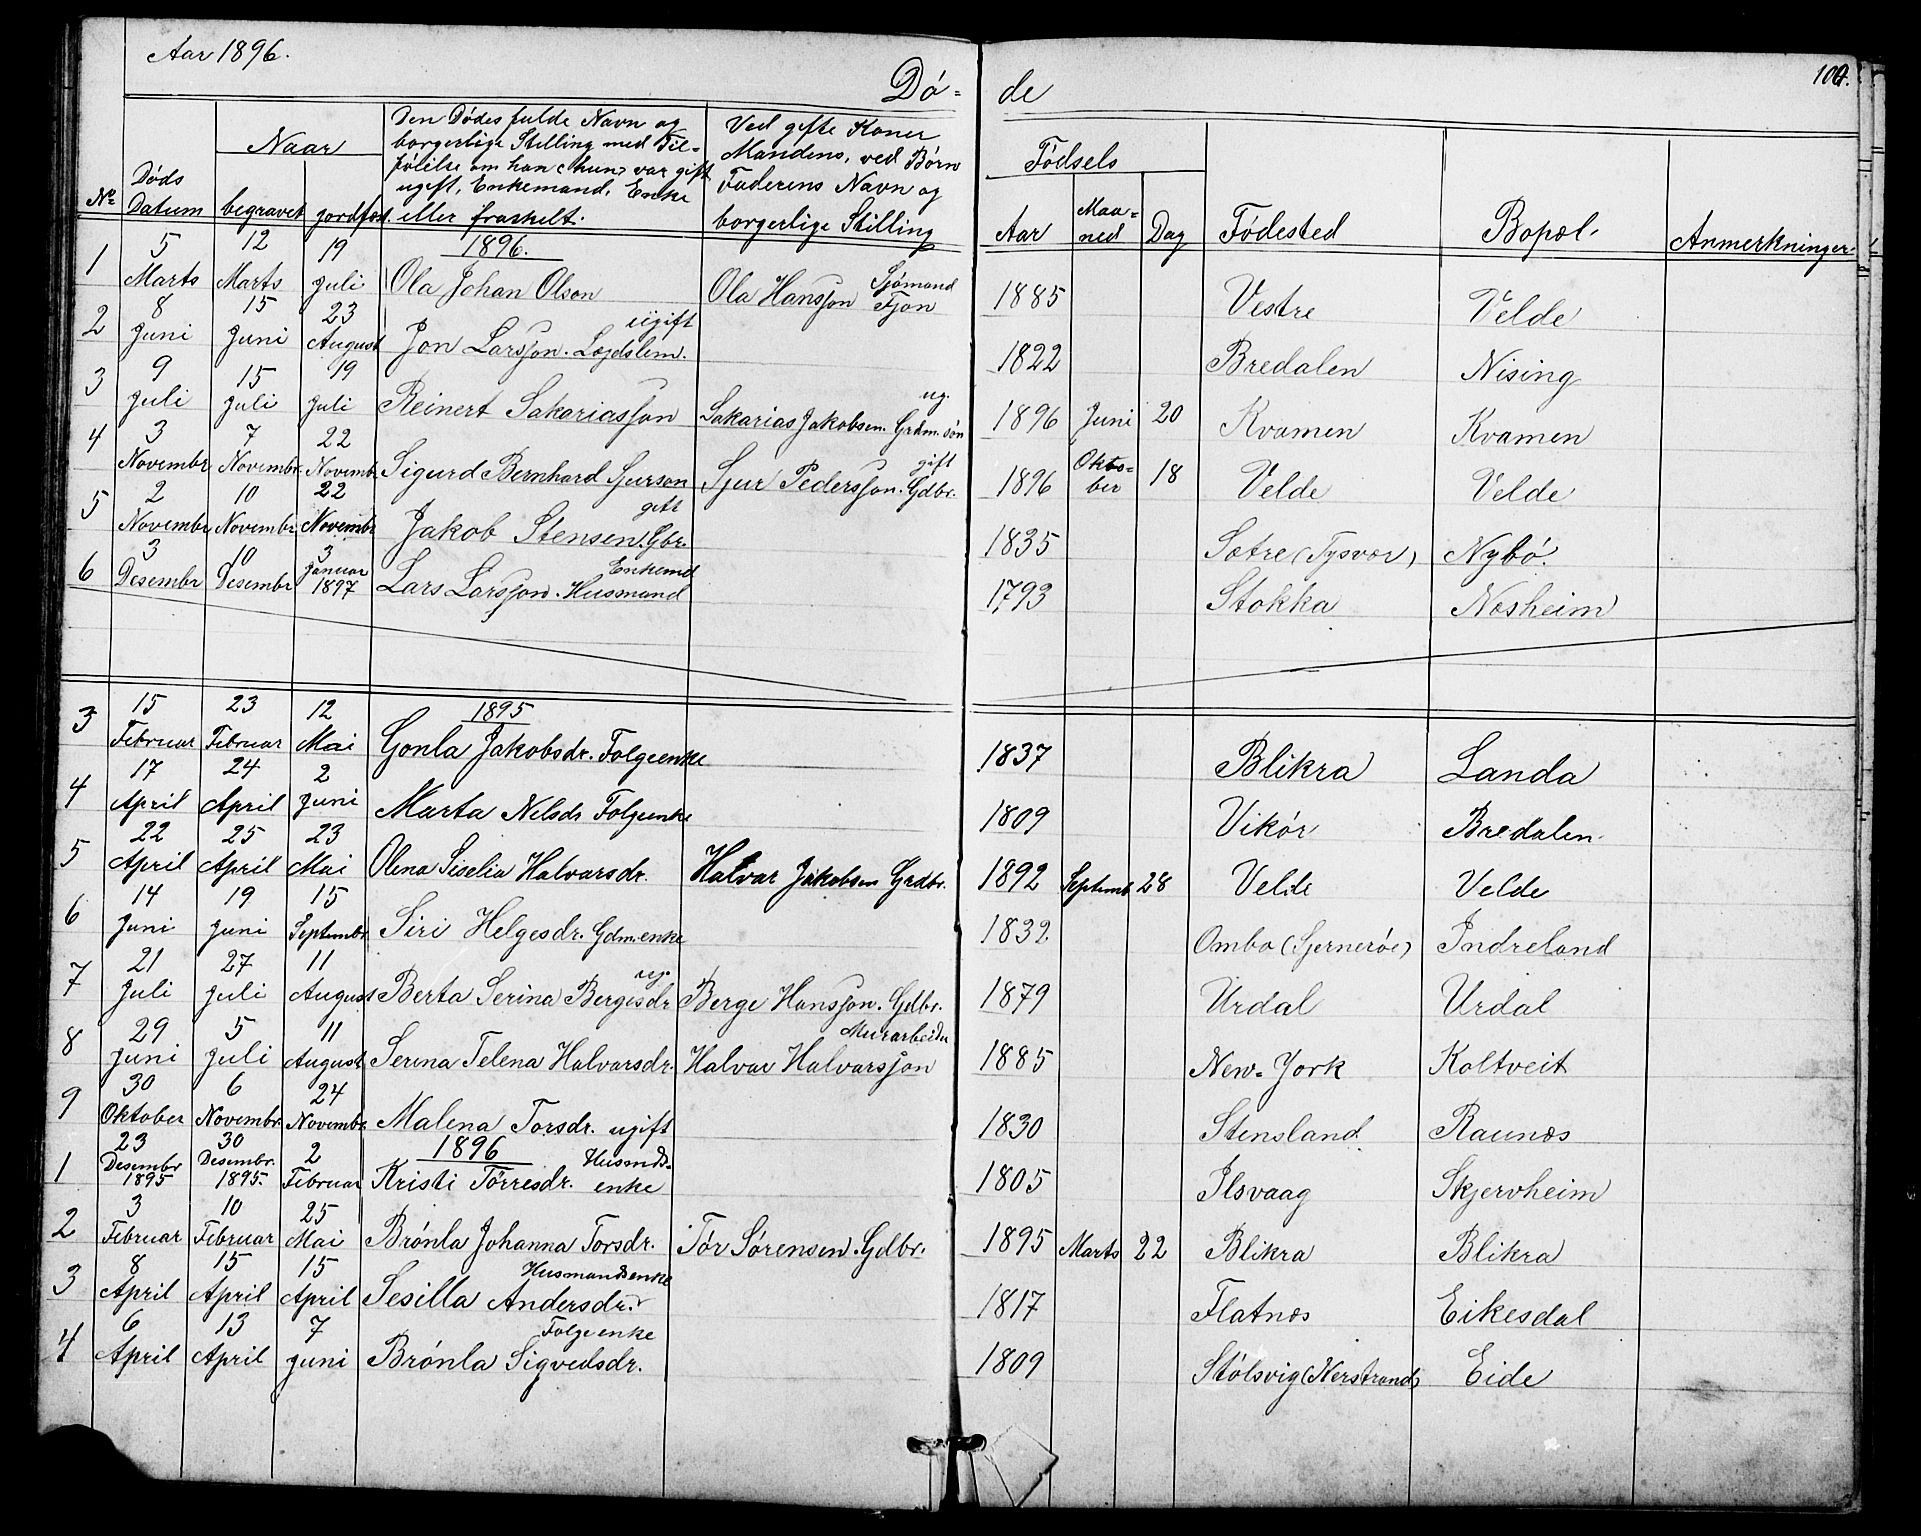 Aar 1896.
Dö- de
100.
No Døds Datum Naar begravet jordfæst. Den Dødes fulde Navn og borgerlige Stilling med Tilføielse om han (hun) var gift ugift, Enkemand, Enke eller fraskelt. Ved gifte Koner Mandens, ved Børn Faderens Navn og borgerlige Stilling Fødsels Aar Maaned Dag Fødested Bopæl. Anmerkninger.
1896.
1 5 Marts 12 Marts 19 Juli Ola Johan Olson Ola Hansson Sjømand Tjon 1885 Vestre Velde
2 8 Juni 15 Juni 23 August Jon Larsson. Lægdslem. ugift 1822 Bredalen Nising
3 9 Juli 15 Juli 19 Juli Reinert Sakariasson Sakarias Jakobsen. Grdm.søn ug. 1896 Juni 20 Kvamen Kvamen
4 3 Novembr 7 Novembr. 22 Novembr Sigurd Bernhard Sjurson Sjur Pedersson. Gdbr. gift 1896 Oktober 18 Velde Velde
5 2 Novembr 10 Novembr 22 Novembr Jakob Stensen. Gbr. gift 1835 Sætre (Tysvær) Nybö.
6 3 Desembr 10 Desembr 3 Januar 1897 Lars Larsson. Husmand Enkemd 1793 Stokka Næsheim
1895
3 15 Februar 23 Februar 12 Mai Gonla Jakobsdr. Folgeenke 1837 Blikra Landa
4 17 April 24 April 2 Juni Marta Nelsdr Folgeenke 1809 Vikör Bredalen.
5 22 April 25 April 23 Mai Olena Siselia Halvarsdr. Halvar Jakobsen Grdbr. 1892 Septemb 28 Velde Velde
6 14 Juni 19 Juni 15 Septembr Siri Helgesdr. Gdm.enke 1832 Ombo (Sjernerøe) Indreland
7 21 Juli 27 Juli 11 August Berta Serina Bergesdr ug. Berge Hansson. Gdbr. 1879 Urdal Urdal
8 29 Juni 5 Juli 11 August Serina Telena Halvarsdr. Halvar Halvarsson Murarbeider 1885 New-York Koltveit
9 30 Oktober 6 Novembr. 24 Novembr Malena Torsdr. ugift 1830 Stensland Raunæs
1896
1 23 Desembr 1895 30 Desembr. 1895. 2 Februar Kristi Törresdr. Husmds-enke 1805 Ilsvaag Skjervheim
2 3 Februar 10 Februar 25 Mai Brönla Johanna Torsdr. Tör Sørensen. Gdbr. 1895 Marts 22 Blikra Blikra
3 8 April 15 April 15 April Sesilla Andersdr. Husmandsenke 1817 Flatnæs Eikesdal
4 6 April 13 April 7 Juni Brönla Sigvedsdr. Folgeenke 1809 Stölsvig (Nerstrand) Eide